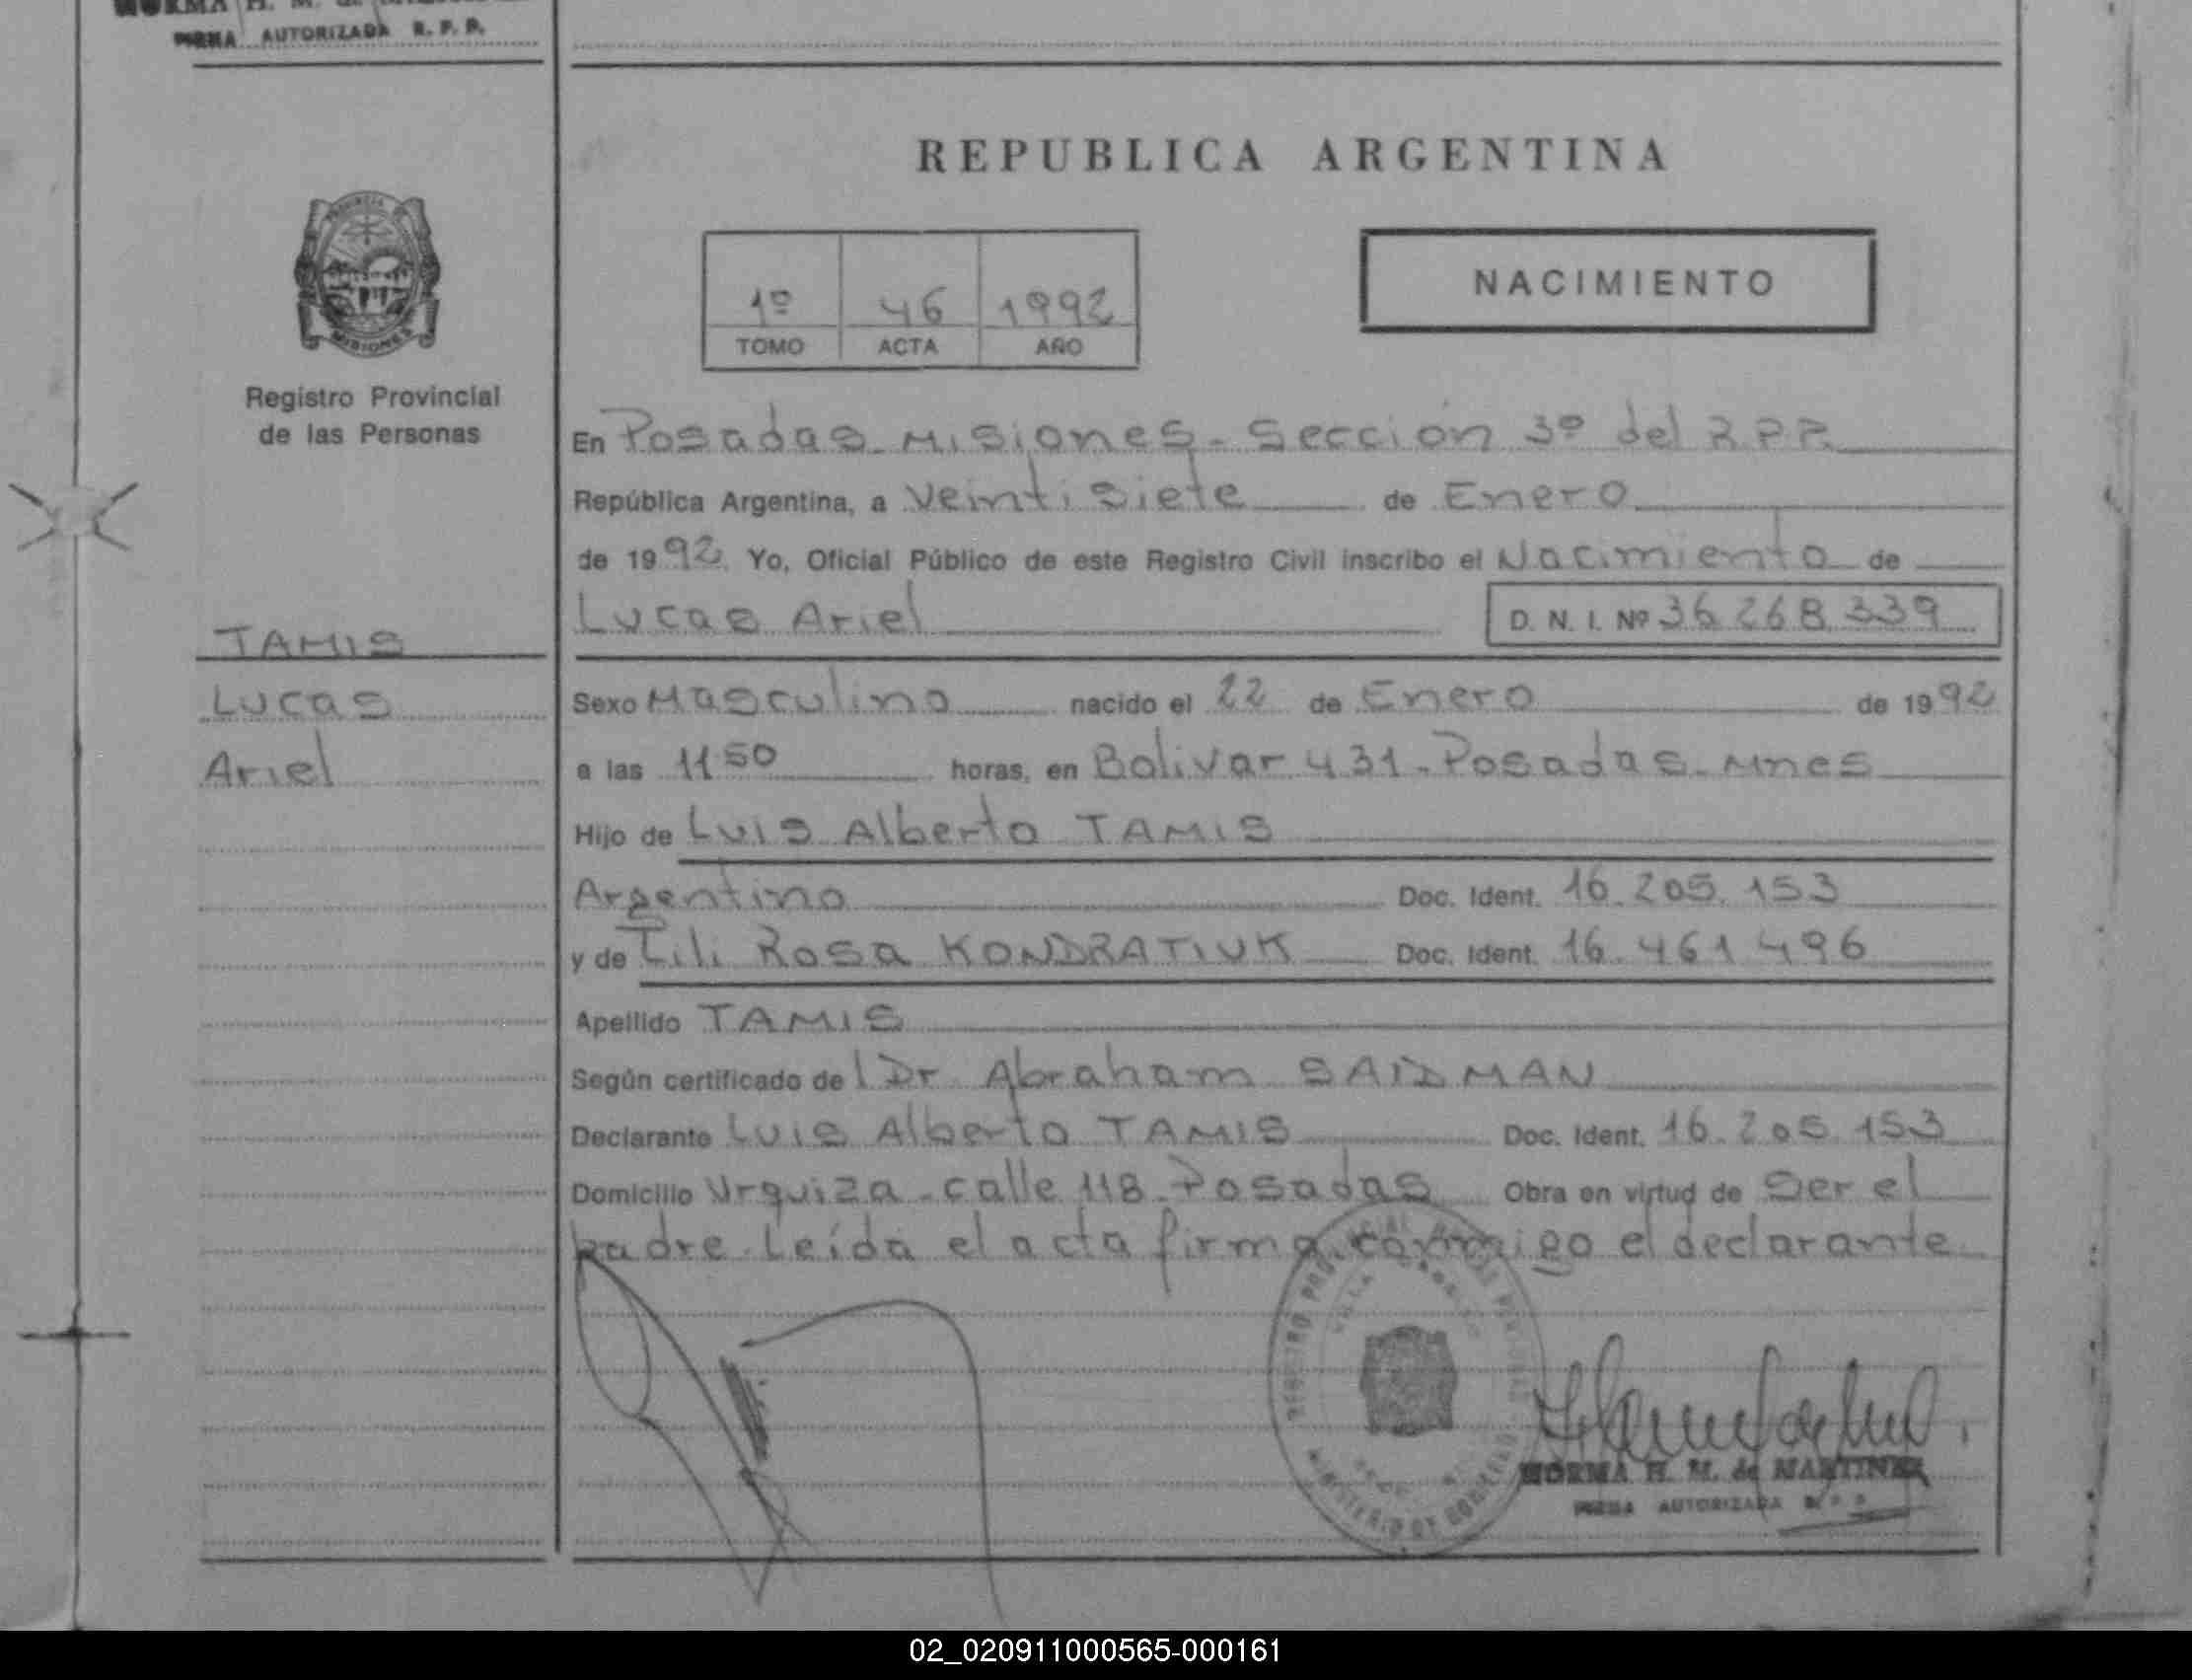 NORMA H. M.
FIRMA AUTORIZADA R. P. P.
REPUBLICA ARGENTINA
1º 46 1992
TOMO ACTA AÑO
NACIMIENTO
PROVINCIA DE
MISIONES
Registro Provincial
de las Personas
En Posadas - Misiones - Sección 3º del R.P.P.
República Argentina, a veintisiete de Enero
de 1992. Yo, Oficial Público de este Registro Civil inscribo el Nacimiento de
Lucas Ariel D. N. I. Nº 36 268 339
TAMIS
Lucas
Ariel
Sexo Masculino nacido el 22 de Enero de 1992
a las 11 50 horas, en Bolivar 431 - Posadas - Mnes
Hijo de Luis Alberto TAMIS
Argentino Doc. Ident. 16.205.153
y de Lili Rosa KONDRATIUK Doc. Ident. 16.461 496
Apellido TAMIS
Según certificado del Dr Abraham SAIDMAN
Declarante Luis Alberto TAMIS Doc. Ident. 16.205 153
Domicilio Urquiza - calle 118 - Posadas Obra en virtud de ser el
padre. Leída el acta firma conmigo el declarante
REGISTRO PROVINCIAL DE LAS PERSONAS
MINISTERIO DE GOBIERNO
NORMA H. M. de MARTINEZ
FIRMA AUTORIZADA R. P. P.
02_020911000565-000161